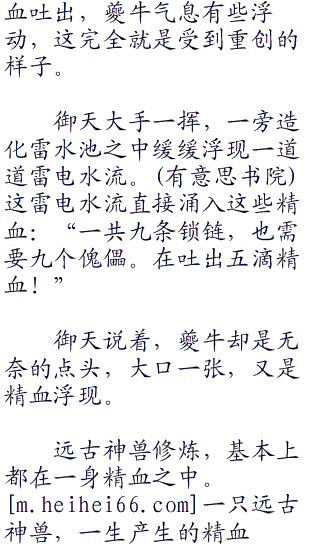 血吐出，夔牛气息有些浮
动，这完全就是受到重创的
样子。
御天大手一挥，一旁造
化雷水池之中缓缓浮现一道
道雷电水流。(有意思书院)
这雷电水流直接涌入这些精
血：“一共九条锁链，也需
要九个傀儡。在吐出五滴精
血！”
御天说着，夔牛却是无
奈的点头，大口一张，又是
精血浮现。
远古神兽修炼，基本上
都在一身精血之中。
[m.heihei66.com]一只远古
神兽，一生产生的精血